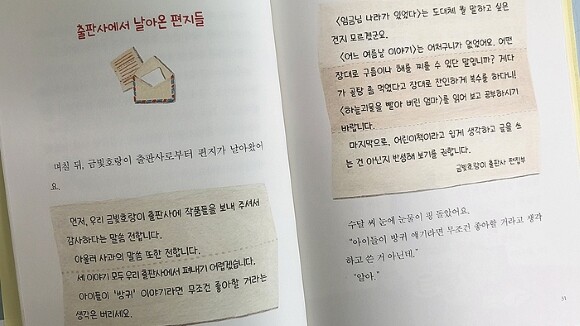 출판사에서 날아온 편지들
며칠 뒤, 금빛호랑이 출판사로부터 편지가 날아왔어
요.
먼저, 우리 금빛호랑이 출판사에 작품들을 보내 주셔서
감사하다는 말씀 전합니다.
아울러 사과의 말씀 또한 전합니다.
세 이야기 모두 우리 출판사에서 펴내기 어렵겠습니다.
아이들이 '방귀' 이야기라면 무조건 좋아할 거라는
생각은 버리세요.
〈임금님 나라가 있었다〉는 도대체 뭘 말하고 싶은
건지 모르겠군요.
〈어느 여름날 이야기〉는 어처구니가 없었어요. 어떤
장대로 구름이나 해를 찌를 수 있단 말입니까? 게다
가 골탕 좀 먹었다고 장대로 잔인하게 복수를 하다니!
〈하늘괴물을 빨아 버린 엄마〉를 읽어 보고 공부하시기
바랍니다.
마지막으로, 어린이책이라고 쉽게 생각하고 글을 쓰
는 건 아닌지 반성해 보기를 권합니다.
금빛호랑이 출판사 편집부
수달 씨 눈에 눈물이 핑 돌았어요.
"아이들이 방귀 얘기라면 무조건 좋아할 거라고 생각
하고 쓴 거 아닌데."
"알아."
31